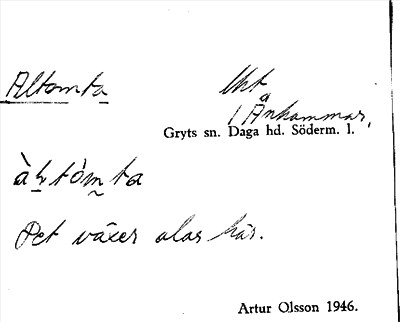 Altomta
lht
i Änhammar,
Gryts sn. Daga hd. Söderm. l.
Det växer alar här.
Artur Olsson 1946.